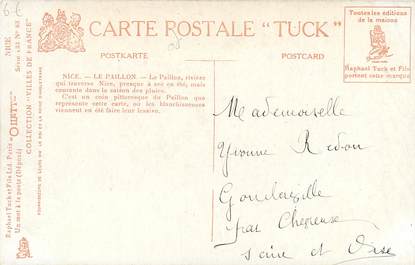 6-€
CARTE POSTALE "TUCK"
POSTKARTE
POSTCARD
Toutes les éditions
de la maison
Raphael Tuck et Fils
portent cette marque
NICE. — LE PAILLON. — Le Paillon, rivière
qui traverse Nice, presque à sec en été, mais
courante dans la saison des pluies.
C'est un coin pittoresque du Paillon que
représente cette carte, où les blanchisseuses
viennent en été faire leur lessive.
NICE
Série 123 N° 83
COLLECTION "VILLES DE FRANCE"
Raphael Tuck et Fils Ltd. Paris
Un mot à la poste (Déposé)
FOURNISSEURS DE LEURS MM. LE ROI ET LA REINE D'ANGLETERRE
Mademoiselle
Yvonne Redon
par Chevreuse
Seine et Oise